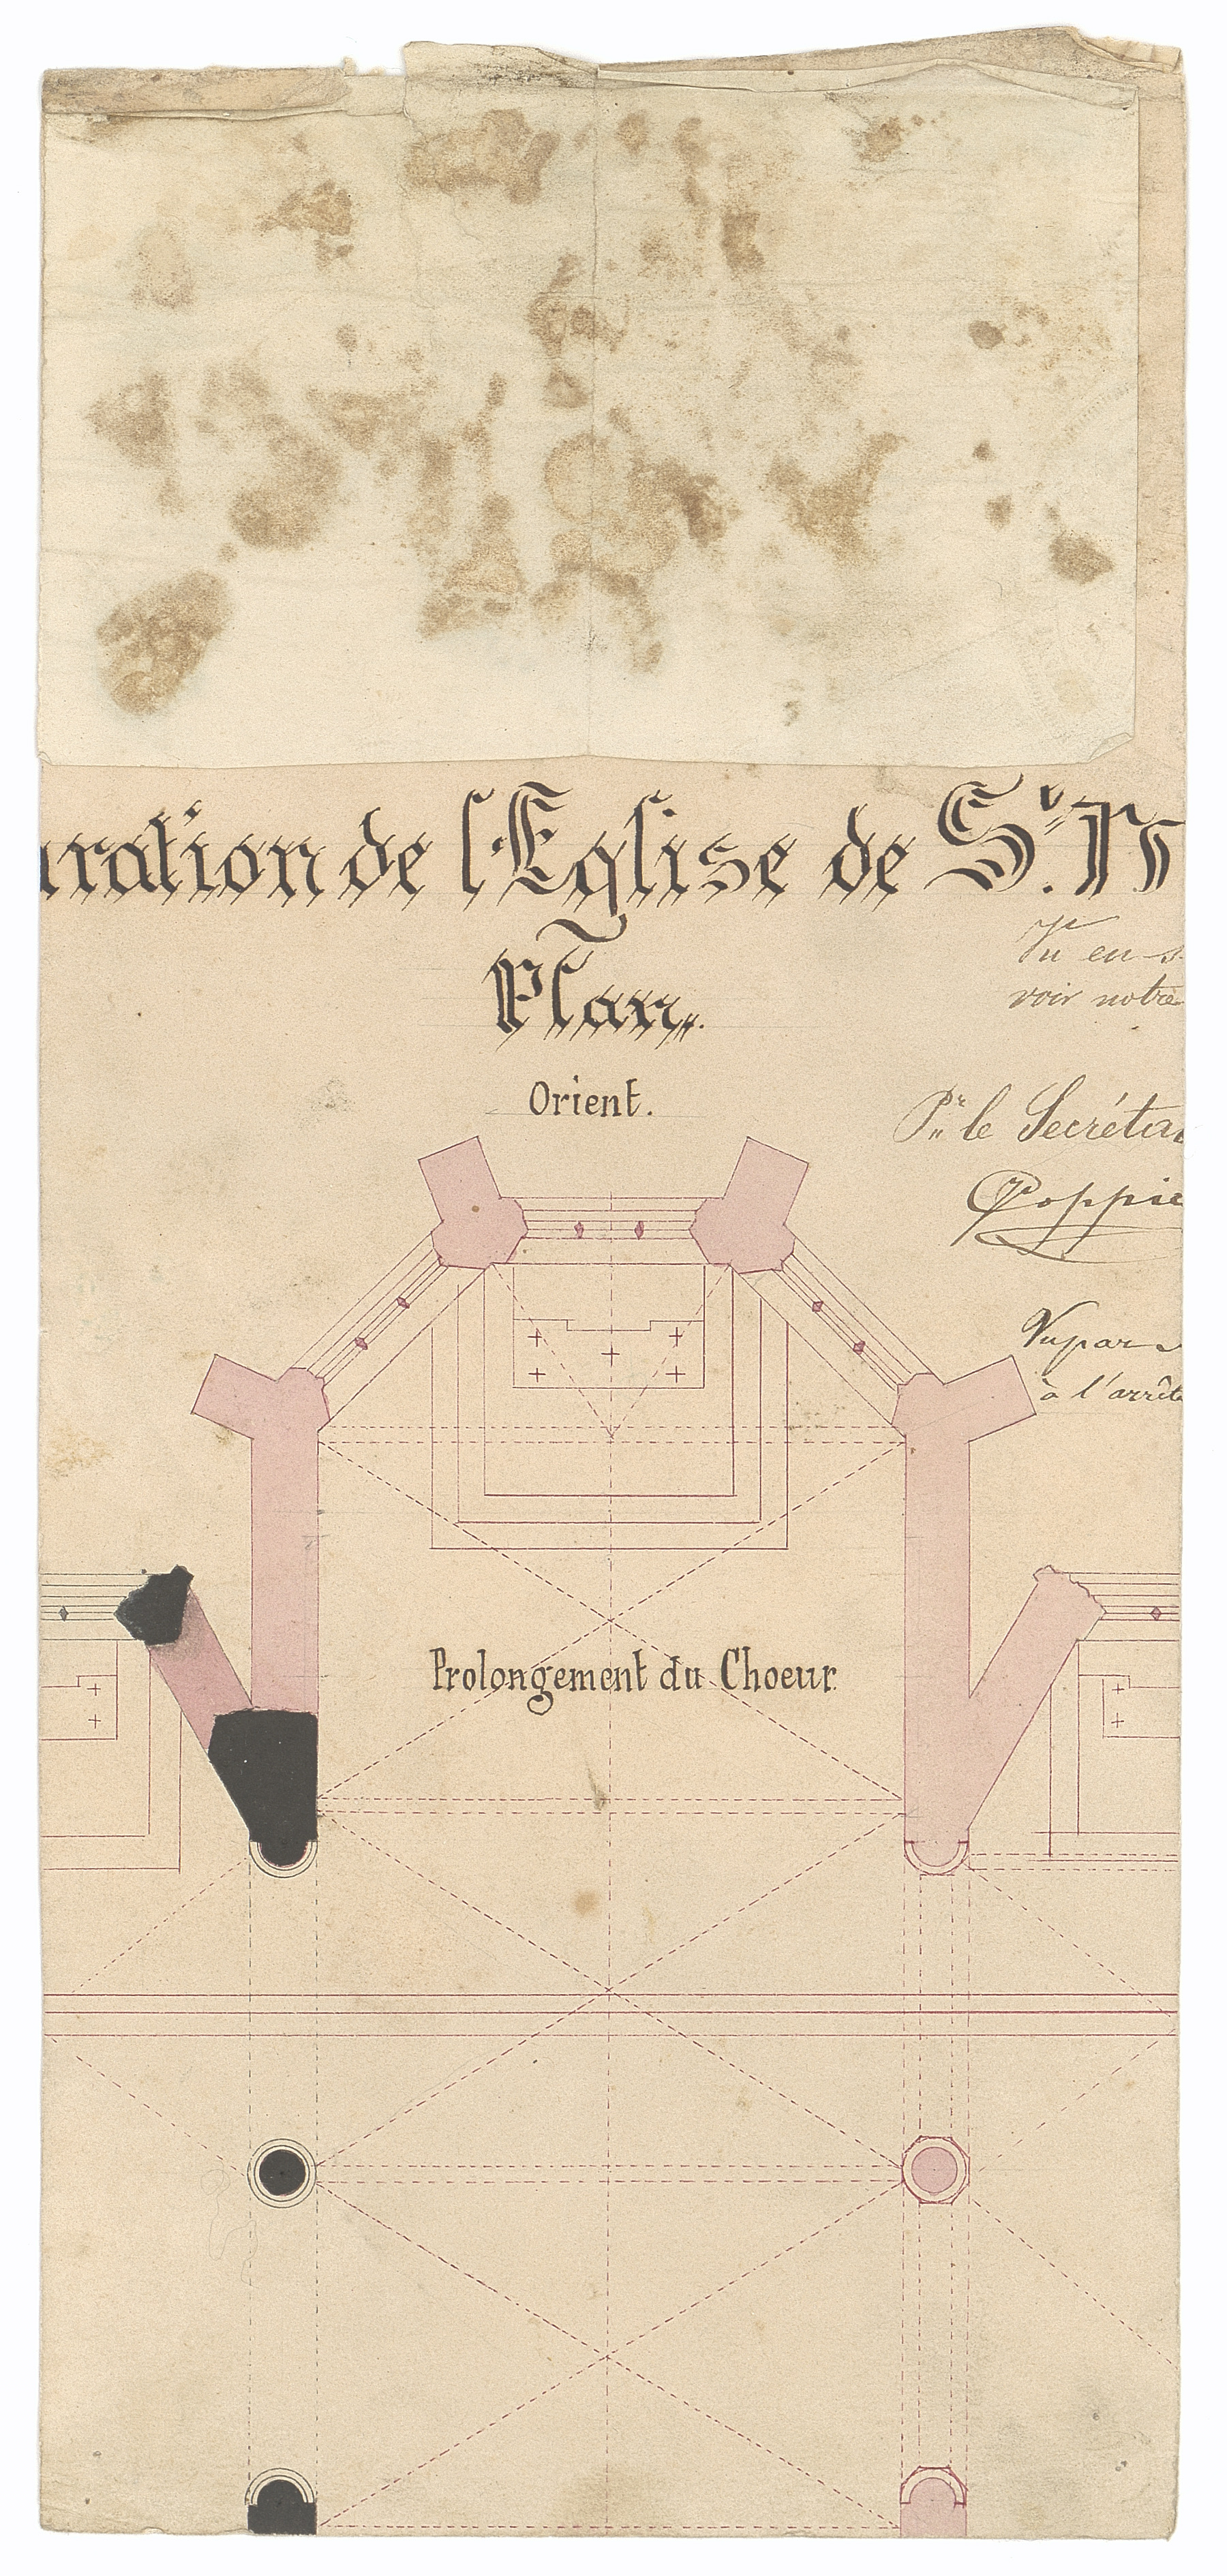 uration de l'Eglise de S.t N
Plan.
Orient.
Vu en s
voir notre
P.r le Secrétai
Poppie
Vu par
à l'arrêté
Prolongement du Choeur.